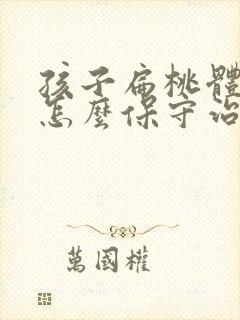 孩子扁桃體
怎麼保守治
萬國權